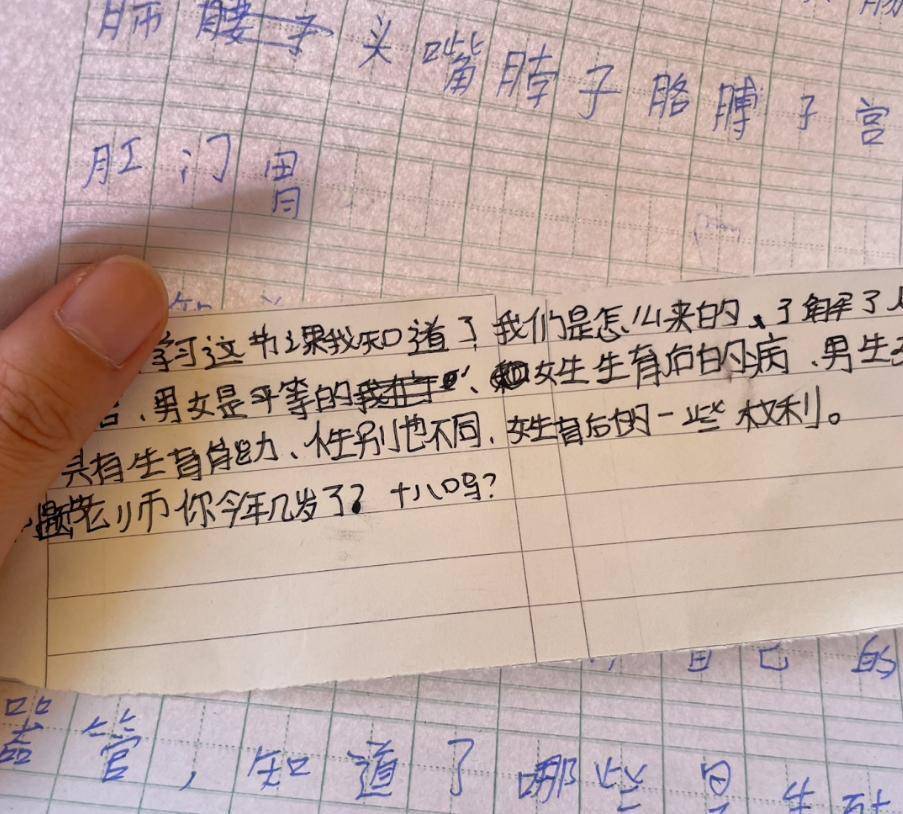 腰子头嘴脖子胳膊子宫
肛门胃
学习这节课我知道了我们是怎么来的、了解了
、男女是平等的、和女生生育后的病、男生
具有生育能力、性别也不同、女生育后的一些权利。
老师你今年几岁了？十八吗？
自己的
器管，知道了哪些是生